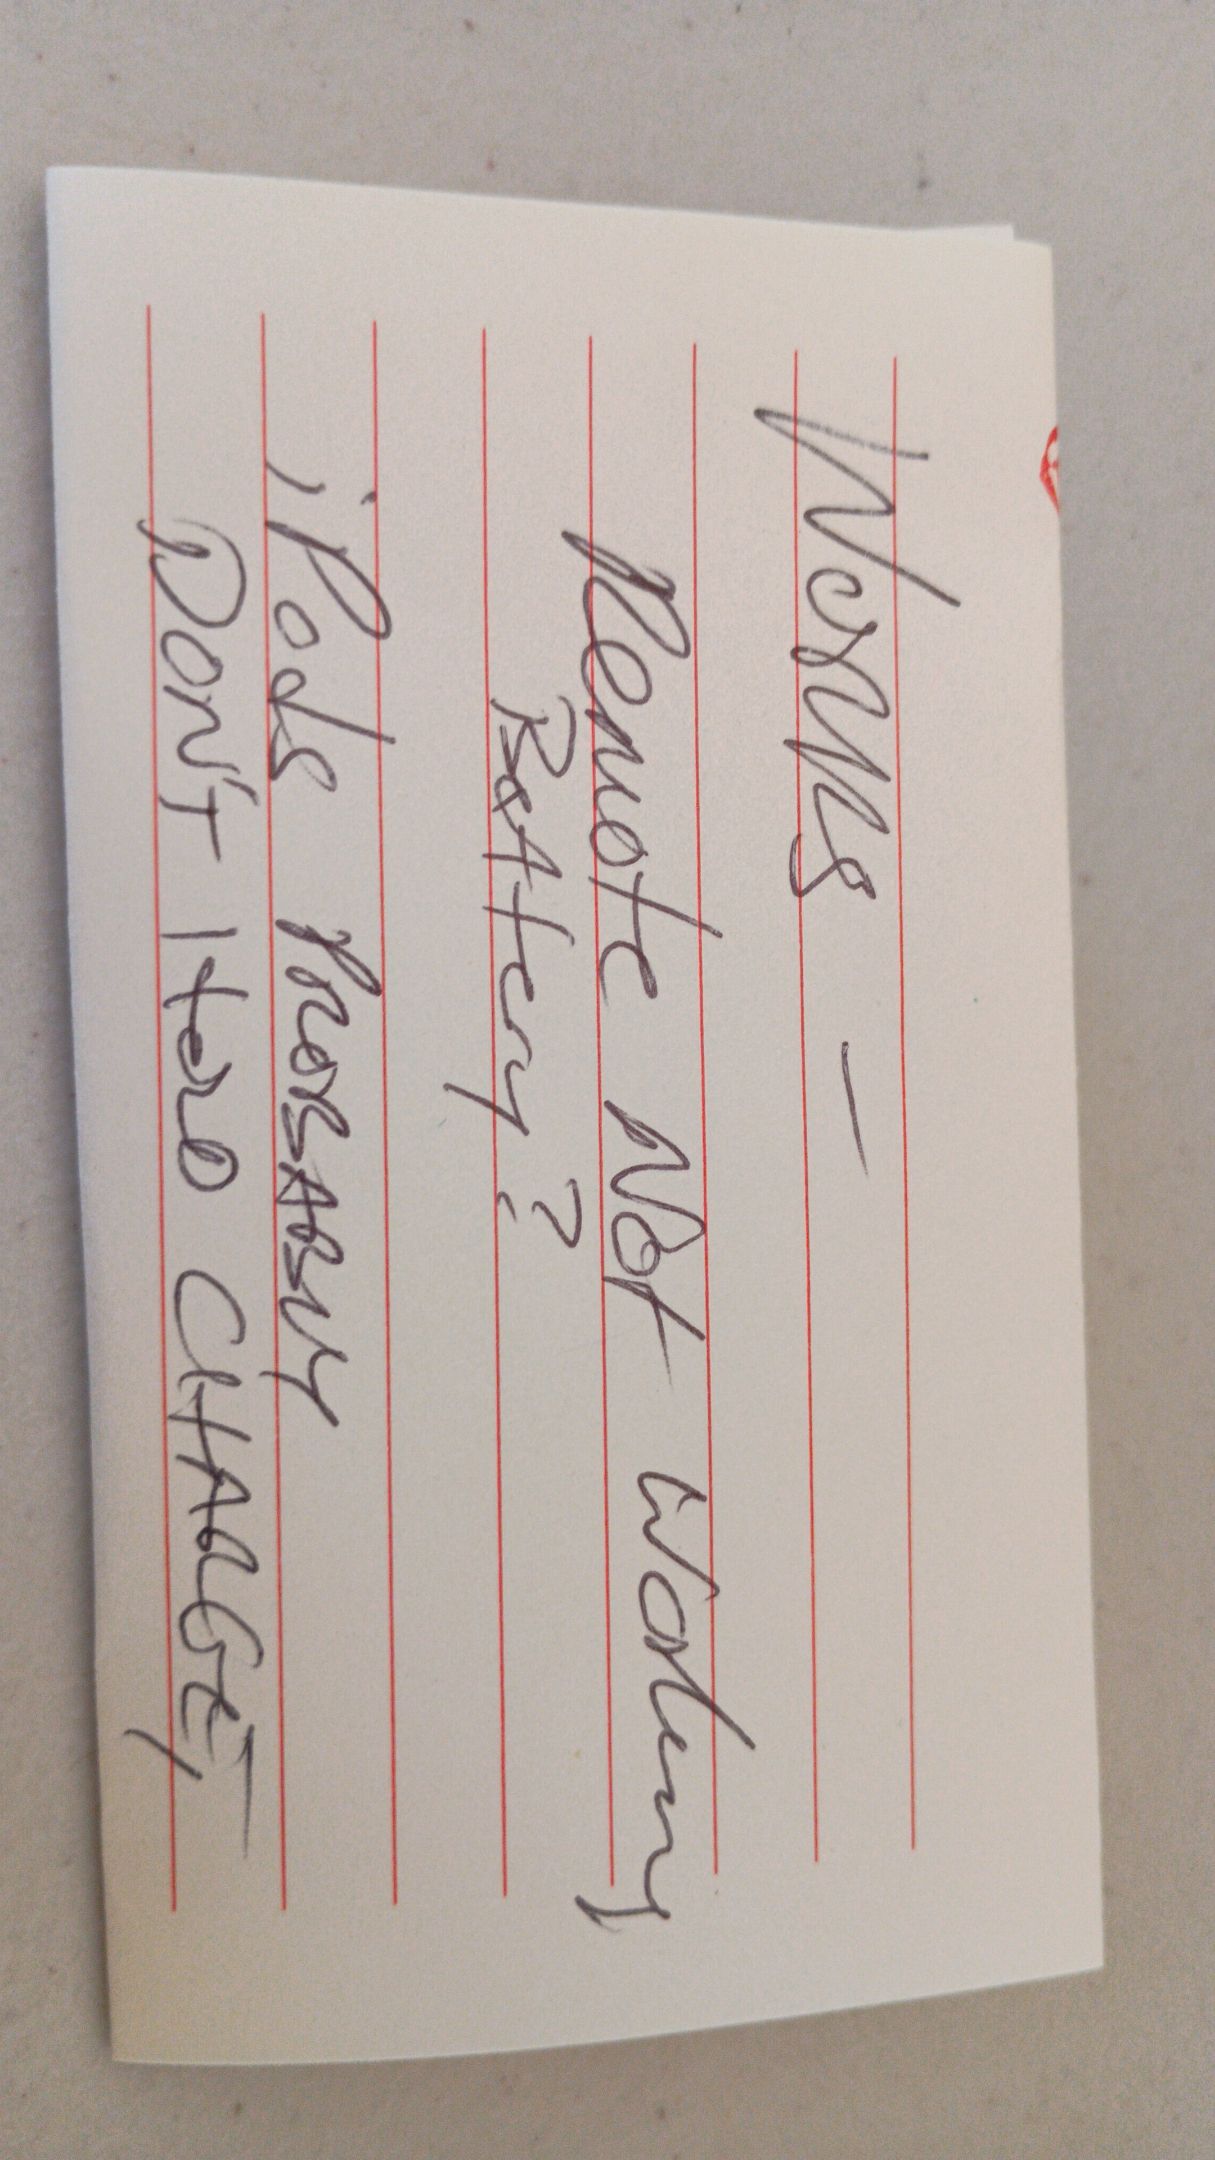 Works —
Remote Not Working
Battery?
iPods PROBABLY
DON'T HOLD CHARGE,